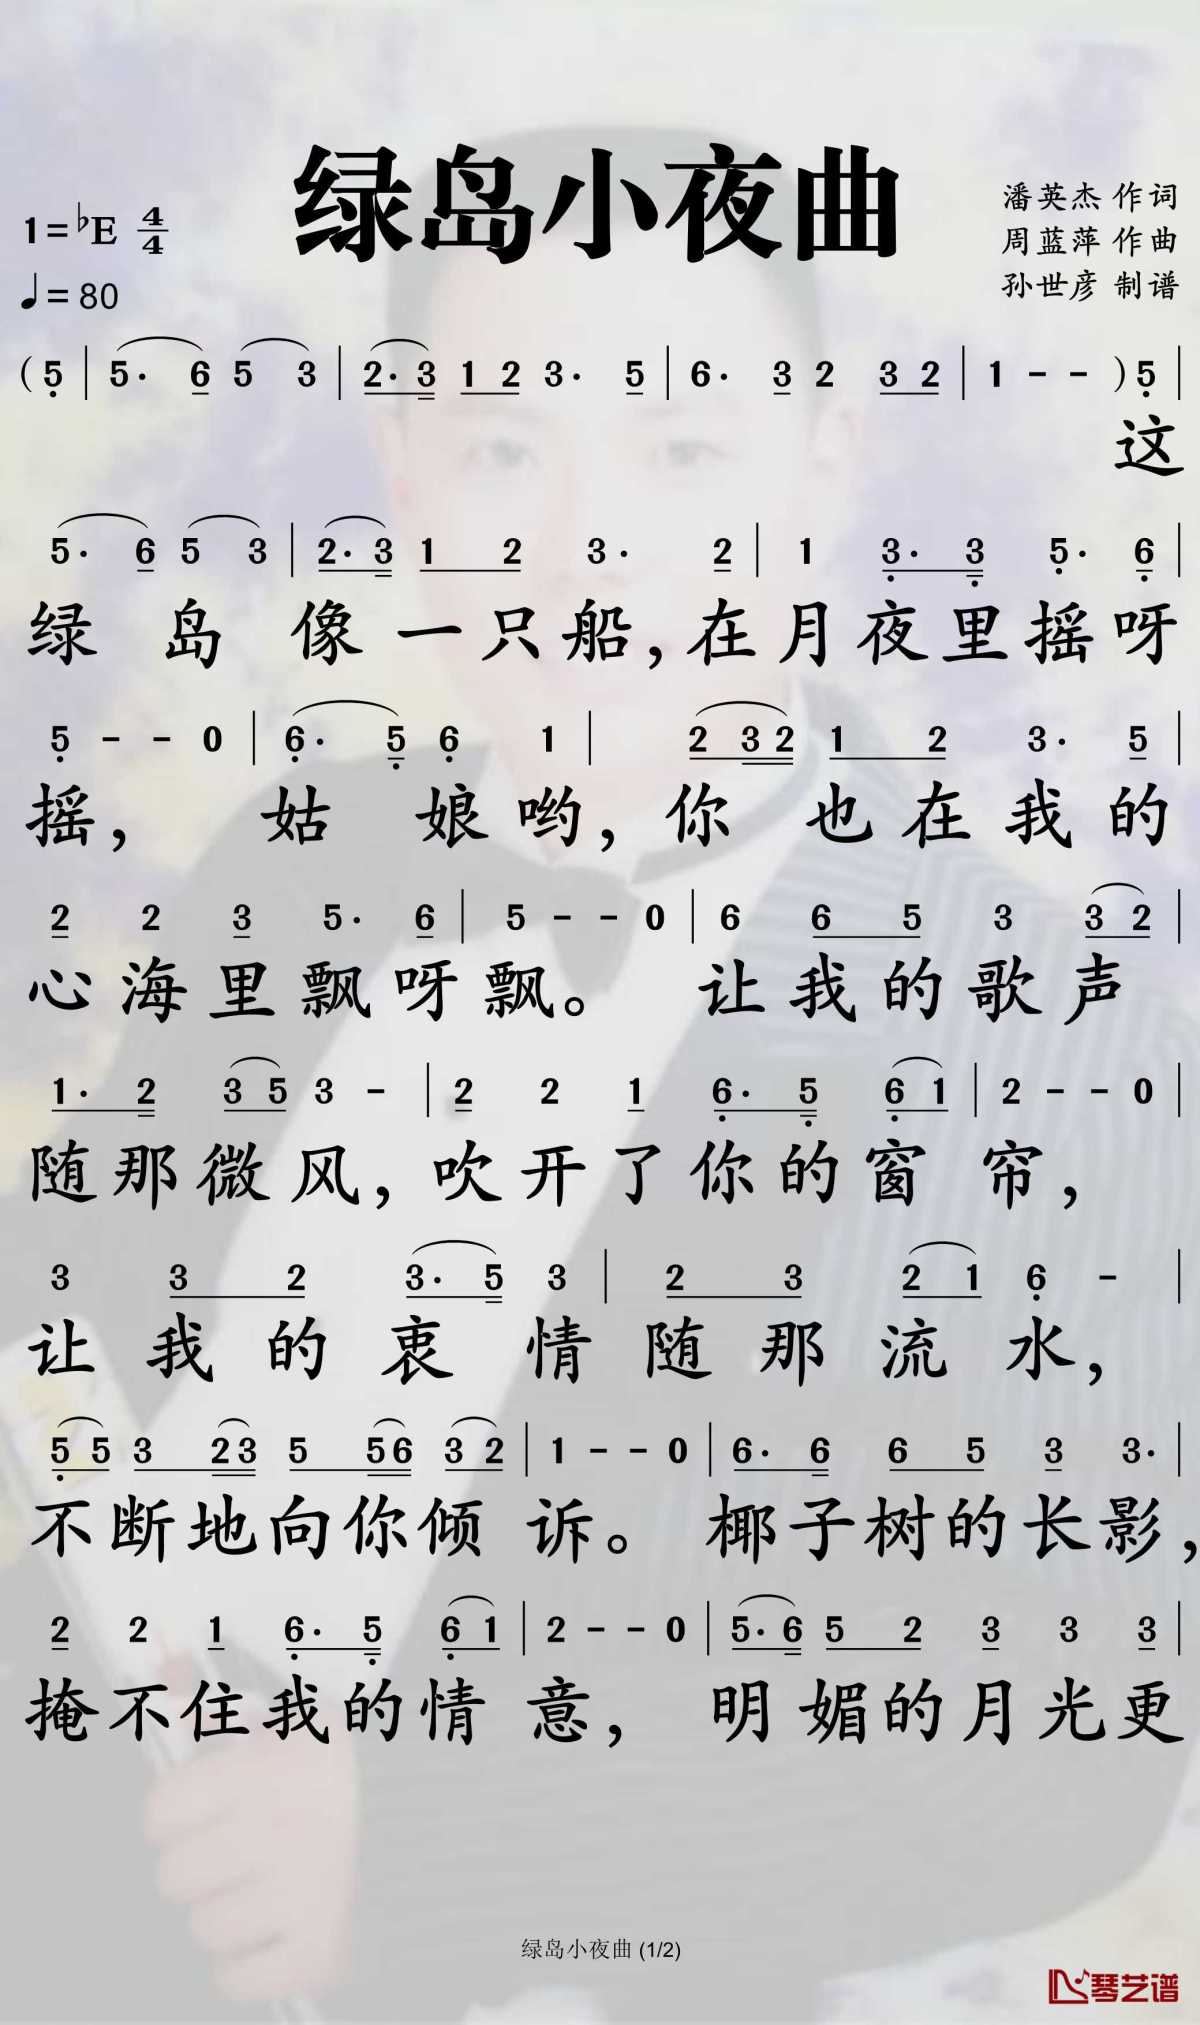 绿岛小夜曲
1=♭E 4/4
♩=80
潘英杰 作词
周蓝萍 作曲
孙世彦 制谱
(5̣ | 5· 6 5 3 | 2·3 1 2 3· 5 | 6· 3 2 3 2 | 1 - - )5̣ |
这
5· 6 5 3 | 2·3 1 2 3· 2 | 1 3̣· 3̣ 5̣· 6̣ |
绿岛像一只船,在月夜里摇呀
5̣ - - 0 | 6̣· 5̣ 6̣ 1 | 2 3 2 1 2 3· 5 |
摇,姑娘哟,你也在我的
2 2 3 5· 6 | 5 - - 0 | 6 6 5 3 3 2 |
心海里飘呀飘。让我的歌声
1· 2 3 5 3 - | 2 2 1 6̣· 5̣ 6̣ 1 | 2 - - 0 |
随那微风,吹开了你的窗帘,
3 3 2 3· 5 3 | 2 3 2 1 6̣ - |
让我的衷情随那流水,
5̣ 5 3 2 3 5 5 6 3 2 | 1 - - 0 | 6· 6 6 5 3 3· |
不断地向你倾诉。椰子树的长影,
2 2 1 6̣· 5̣ 6̣ 1 | 2 - - 0 | 5· 6 5 2 3 3 3 |
掩不住我的情意,明媚的月光更
绿岛小夜曲 (1/2)
琴艺谱